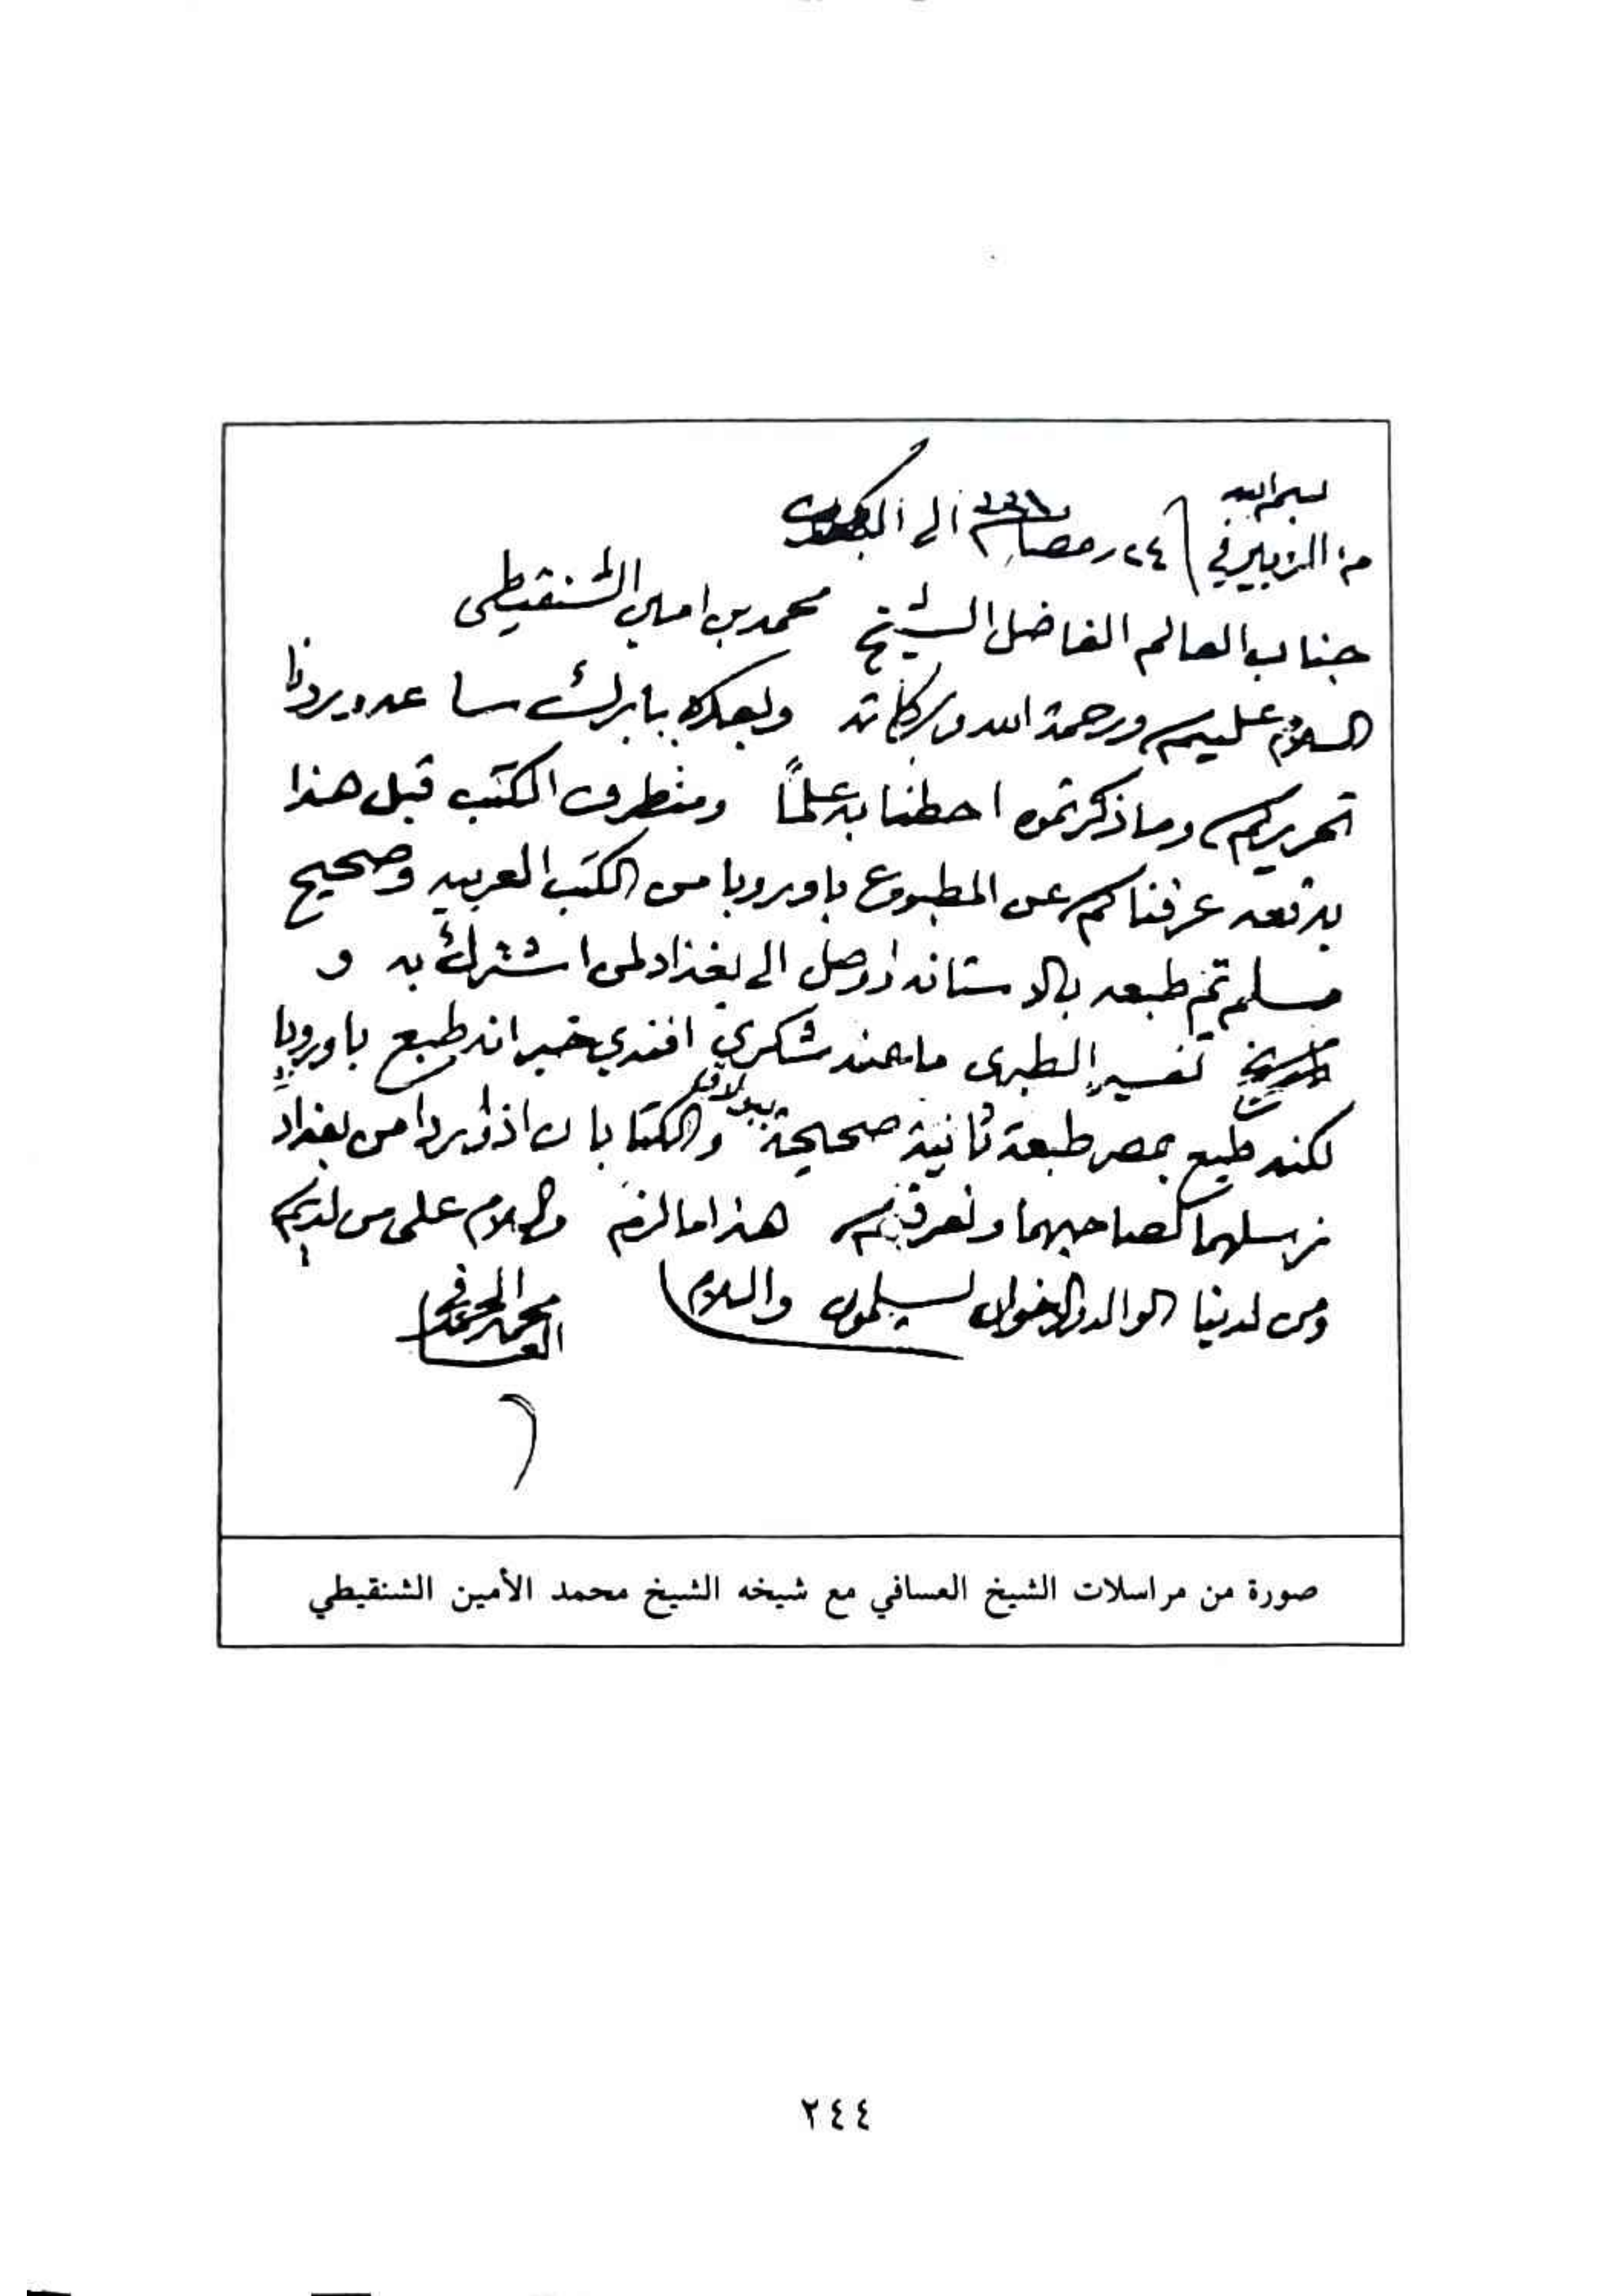 بسم الله
من الزبير في ٢٤ رمضان الى
جناب العالم الفاضل الشيخ محمد بن امين الشنقيطي
السلام عليكم ورحمة الله وبركاته وبعده
تحريركم وما ذكرتموه احطنا به علماً ومنطرف الكتب قبل هذا
عرفناكم عن المطبوع باوروبا من الكتب العربيه وصحيح
مسلم تم طبعه بالاستانه الى بغداد لمن اشترك به و
تفسير الطبري ما عند شكري افندي خبر انه طبع باوروبا
لكنه طبع بمصر طبعة ثانية صحيحة ببولاق والكتابان اذا وردا من بغداد
نرسلهما لصاحبهما ونعرفكم هذا ما لزم والسلام على من لديكم
ومن لدينا الوالد والاخوان يسلمون والسلام
محمد
العسافي
صورة من مراسلات الشيخ العسافي مع شيخه الشيخ محمد الأمين الشنقيطي
٢٤٤